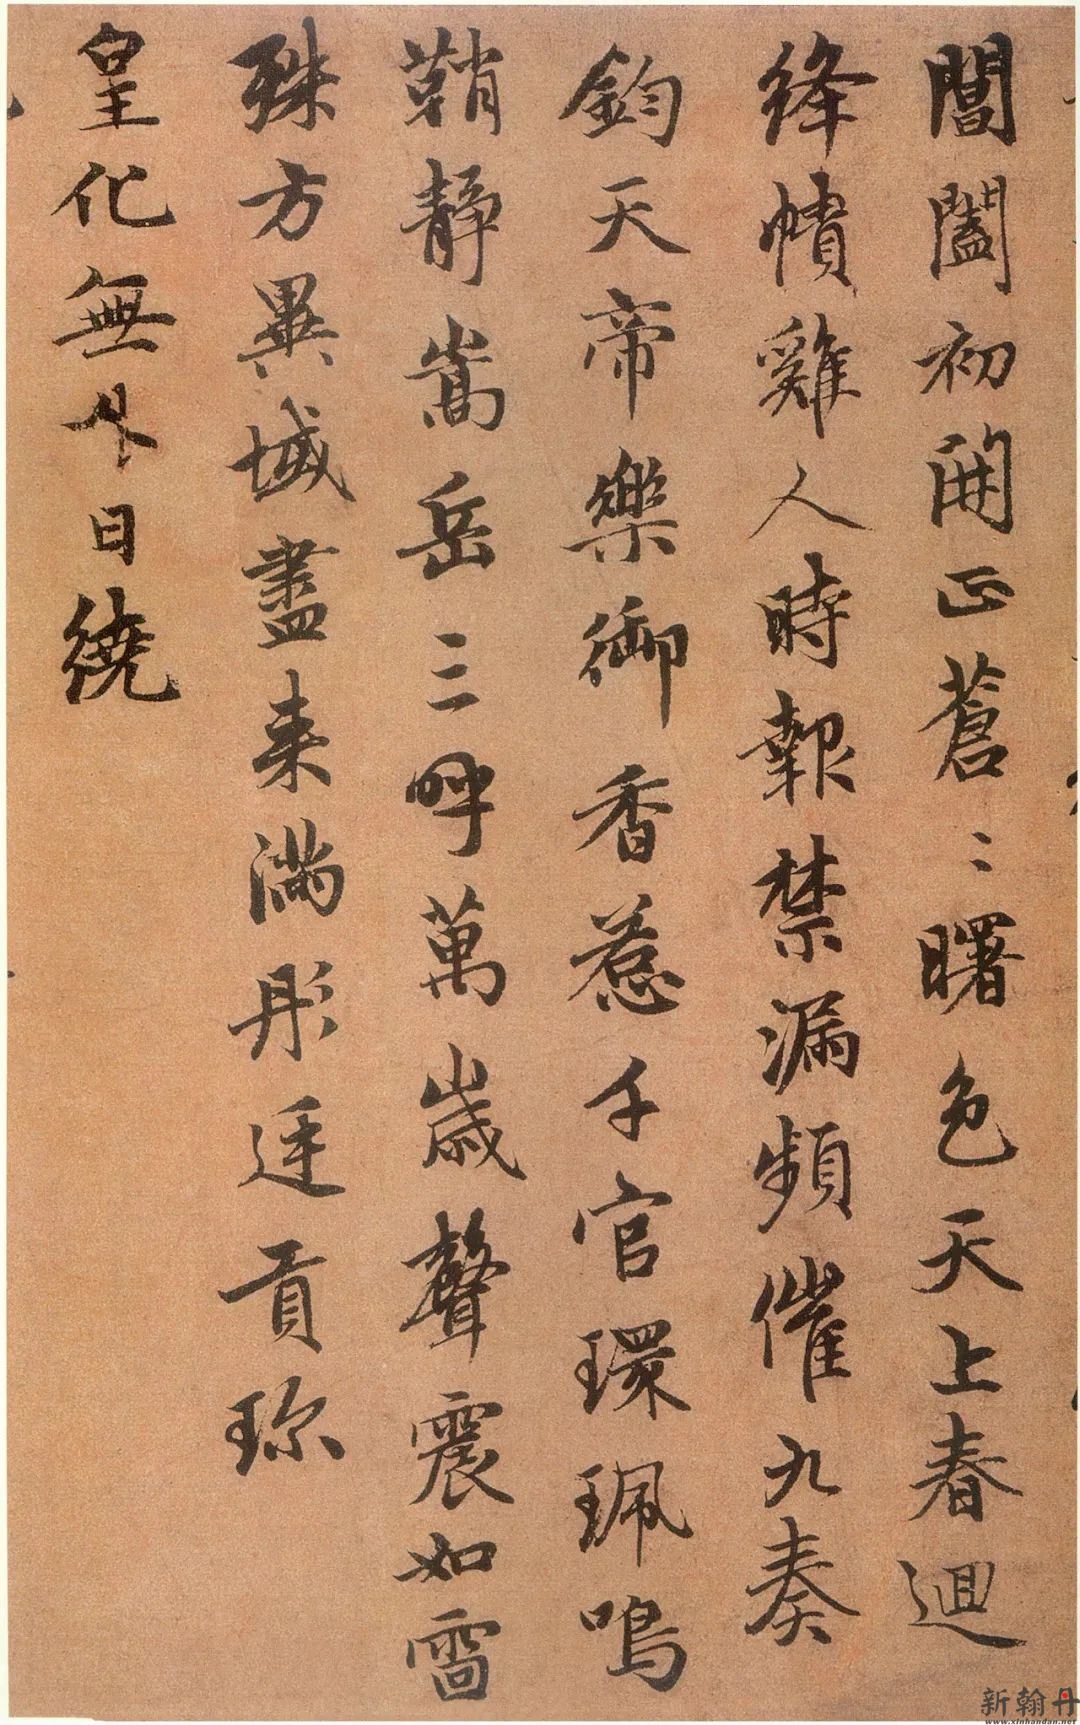 閶闔初開正蒼〻曙色天上春迴
絳幘雞人時報禁漏頻催九奏
鈞天帝樂御香惹千官環珮鳴
鞘靜嵩岳三呼萬歲聲震如雷
殊方異域盡来滿彤廷貢珎
皇化無外日繞
新翰丹
www.xinhandan.net